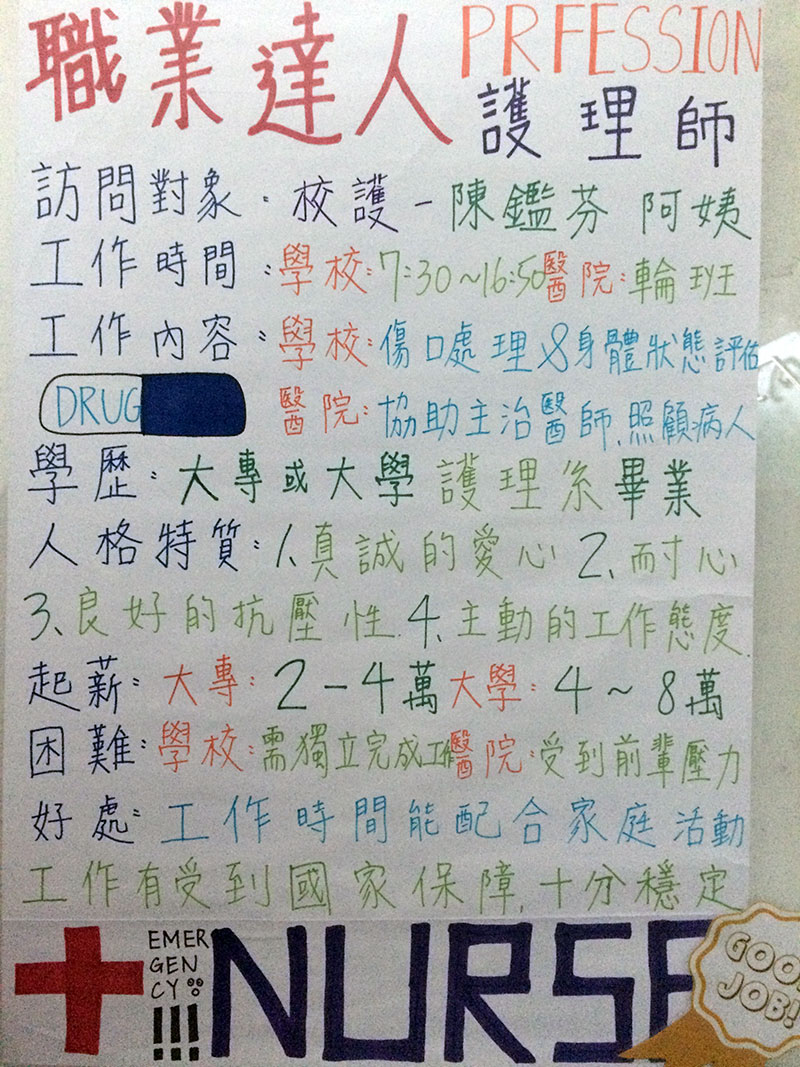 職業達人 PRFESSION
護理師
訪問對象：校護－陳鑑芬 阿姨
工作時間：學校：7:30~16:50 醫院：輪班
工作內容：學校：傷口處理&身體狀態評估
DRUG 醫院：協助主治醫師、照顧病人
學歷：大專或大學護理系畢業
人格特質：1、真誠的愛心 2、耐心
3、良好的抗壓性 4、主動的工作態度.
起薪：大專：2-4萬 大學：4~8萬
困難：學校：需獨立完成工作 醫院：受到前輩壓力
好處：工作時間能配合家庭活動
工作有受到國家保障,十分穩定
EMER
GEN
CY
!!!
NURSE
GOOD
JOB!